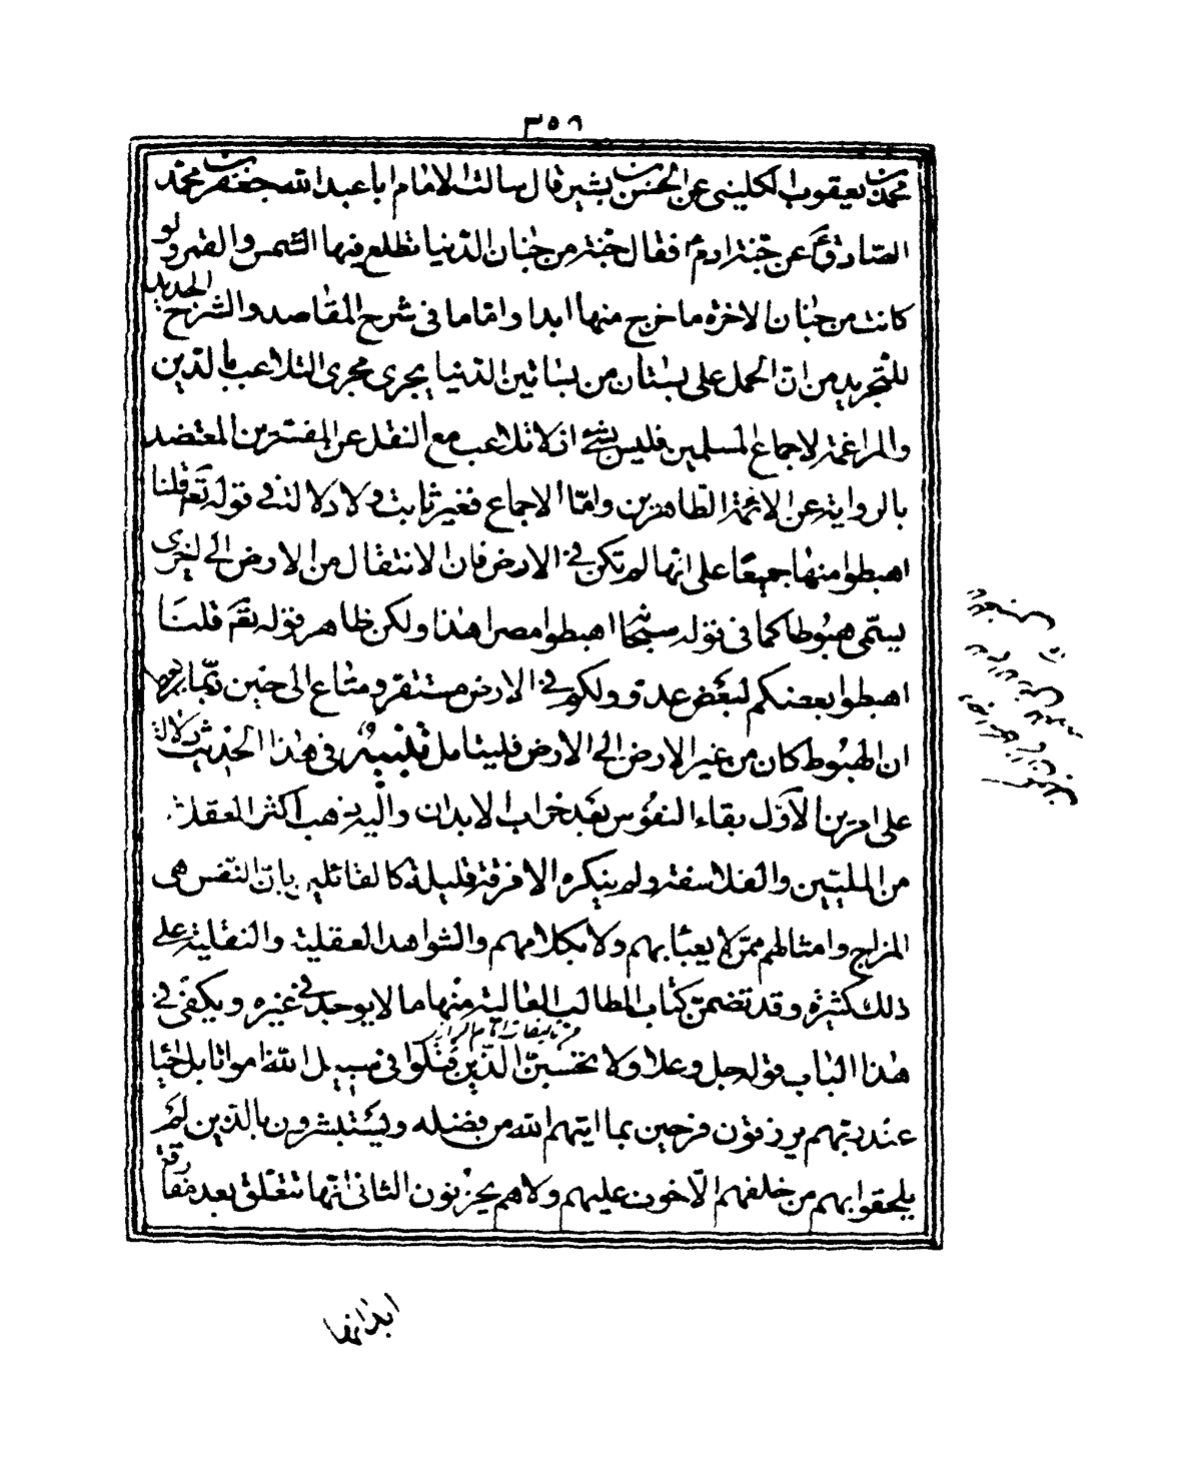 ٣٥٦
محمد بن يعقوب الكليني عن الحسن بن بشير قال سالت الامام ابا عبد الله جعفر بن محمد
الصادق ع عن جنة ادم ع فقال جنة من جنان الدنيا تطلع فيها الشمس والقمر ولو
كانت من جنان الاخرة ما خرج منها ابدا واما ما في شرح المقاصد والشرح الجديد
للتجريد من ان الحمل على بستان من بساتين الدنيا يجرى مجرى التلاعب بالدين
والمراغمة لاجماع المسلمين فليس بشئ اذ لا تلاعب مع النقل عن المفسرين المعتضد
بالرواية عن الائمة الطاهرين واما الاجماع فغير ثابت ولا دلالة في قوله تعم قلنا
اهبطوا منها جميعا على انها لم تكن في الارض فان الانتقال من الارض الى اخرى
يسمى هبوطا كما في قوله سبحانه اهبطوا مصرا هذا ولكن ظاهر قوله تعم قلنا
اهبطوا بعضكم لبعض عدو ولكم في الارض مستقر ومتاع الى حين ربما يوهم
ان الهبوط كان من غير الارض الى الارض فليتامل تنبيه وفي هذا الحديث دلالة
على امرين الاول بقاء النفوس بعد خراب الابدان واليه ذهب اكثر العقلاء
من المليين والفلاسفة ولم ينكره الا فرقة قليلة كالقائلين بان النفس هى
المزاج وامثالهم ممن لا يعبا بهم ولا بكلامهم والشواهد العقلية والنقلية على
ذلك كثيرة وقد تضمن كتاب المطالب العالية منها ما لا يوجد في غيره ويكفى في
من تاليفات الامام الرازى
هذا الباب قوله جل وعلا ولا تحسبن الذين قتلوا في سبيل الله امواتا بل احيا
عند ربهم يرزقون فرحين بما اتيهم الله من فضله ويستبشرون بالذين لم
يلحقوا بهم من خلفهم الا خوف عليهم ولا هم يحزنون الثانى انها تتعلق بعد مفارقة
ابدانها